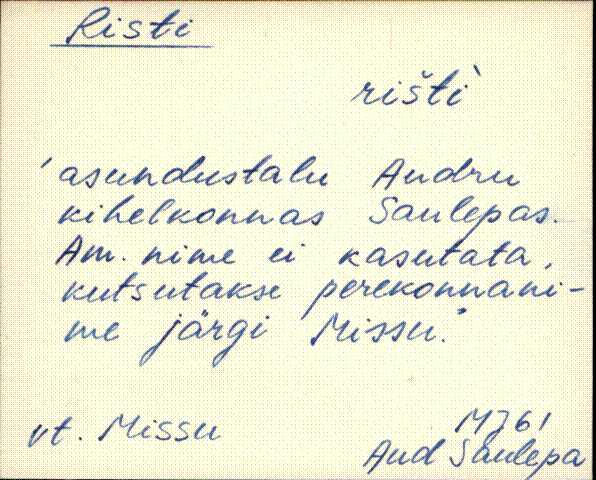 Risti
rišti`
'asundustalu Audru
kihelkonnas Saulepas.
Am. nime ei kasutata,
kutsutakse perekonnani-
me järgi Missu."
vt. Missu
MJ61
Aud Saulepa